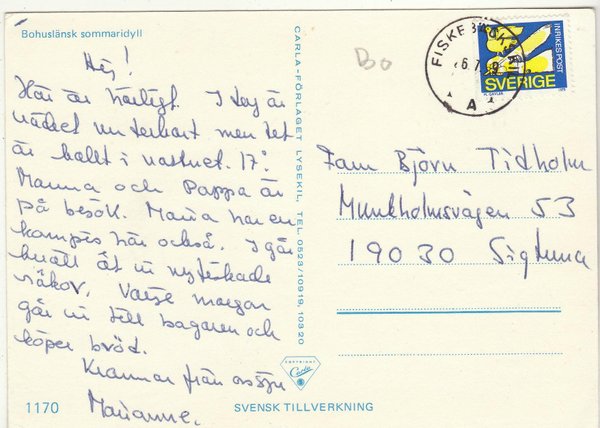 Bohuslänsk sommaridyll
Hej!
Här är härligt. I dag är
vädret underbart men det
är kallt i vattnet. 17°.
Mamma och Pappa är
på besök. Maria har en
kompis här också. I går
kväll åt vi nyfiskade
räkor. Varje morgon
går vi till bagaren och
köper bröd.
Kramar från oss
Marianne.
1170
SVENSK TILLVERKNING
CARLA-FÖRLAGET LYSEKIL, TEL 0523/10919, 10320
COPYRIGHT
Carla
Bo
FISKEBÄCKSKIL
A
INRIKES POST
SVERIGE
Fam Björn Tidholm
Munkholmsvägen 53
19030 Sigtuna